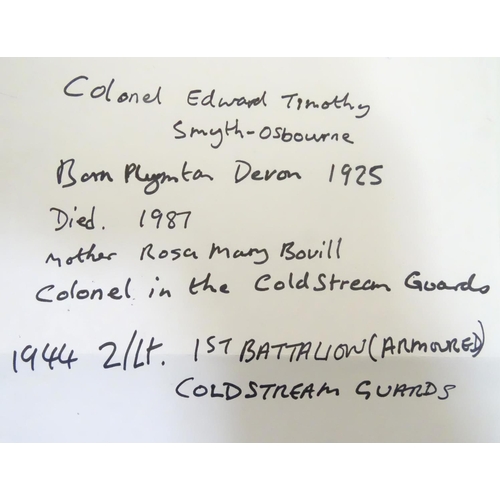 Colonel Edward Timothy
Smyth-Osbourne
Born Plymton Devon 1925
Died. 1987
Mother Rosa Mary Bovill
Colonel in the ColdStream Guards
1944 2/Lt. 1ST BATTALION (ARMOURED)
COLDSTREAM GUARDS